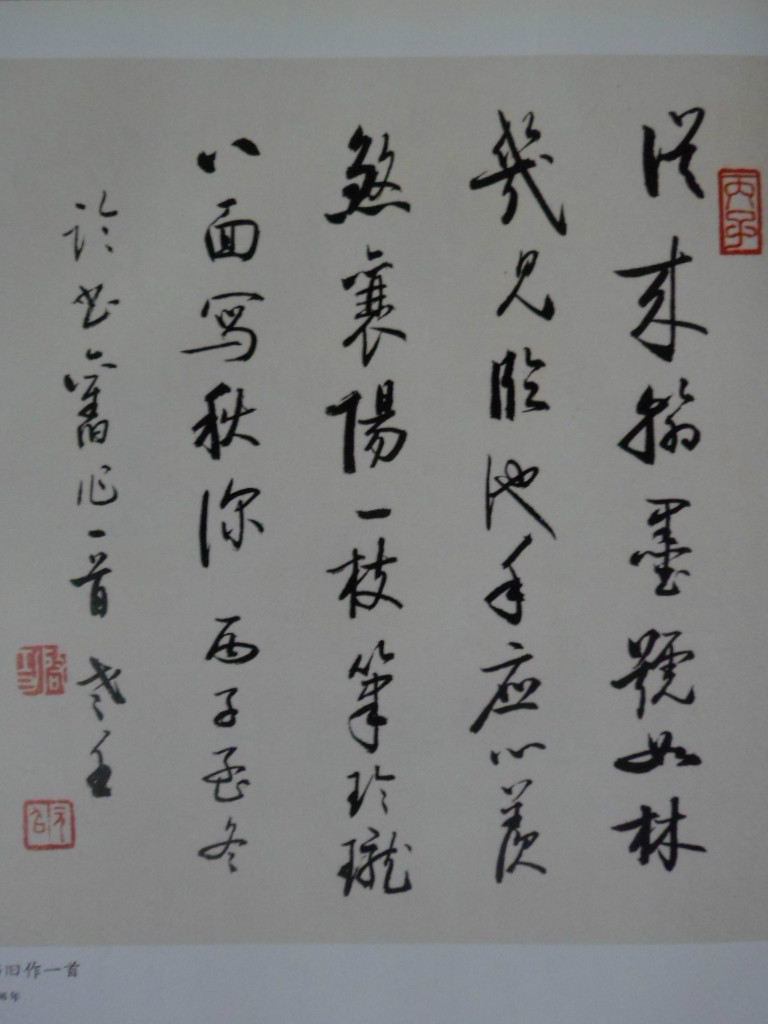 從來翰墨號如林
幾見臨池手應心羨
煞襄陽一枝筆玲瓏
八面寫秋深 丙子孟冬
論書舊作一首
丙子
旧作一首